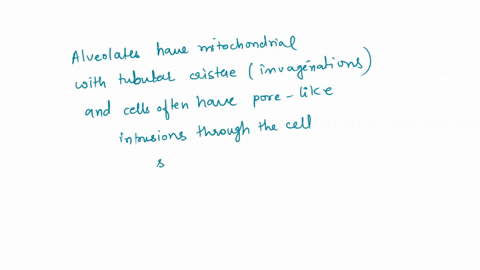 Alveolates have mitochondrial
with tubular cristae (invagenations)
and cells often have pore-like
intrusions through the cell
s